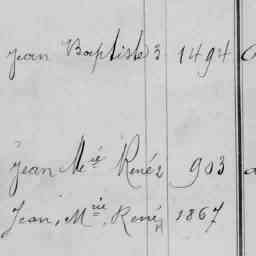 Jean Baptiste 3 1494
Jean Mie René 2 903
Jean, Mrie, René, 1867